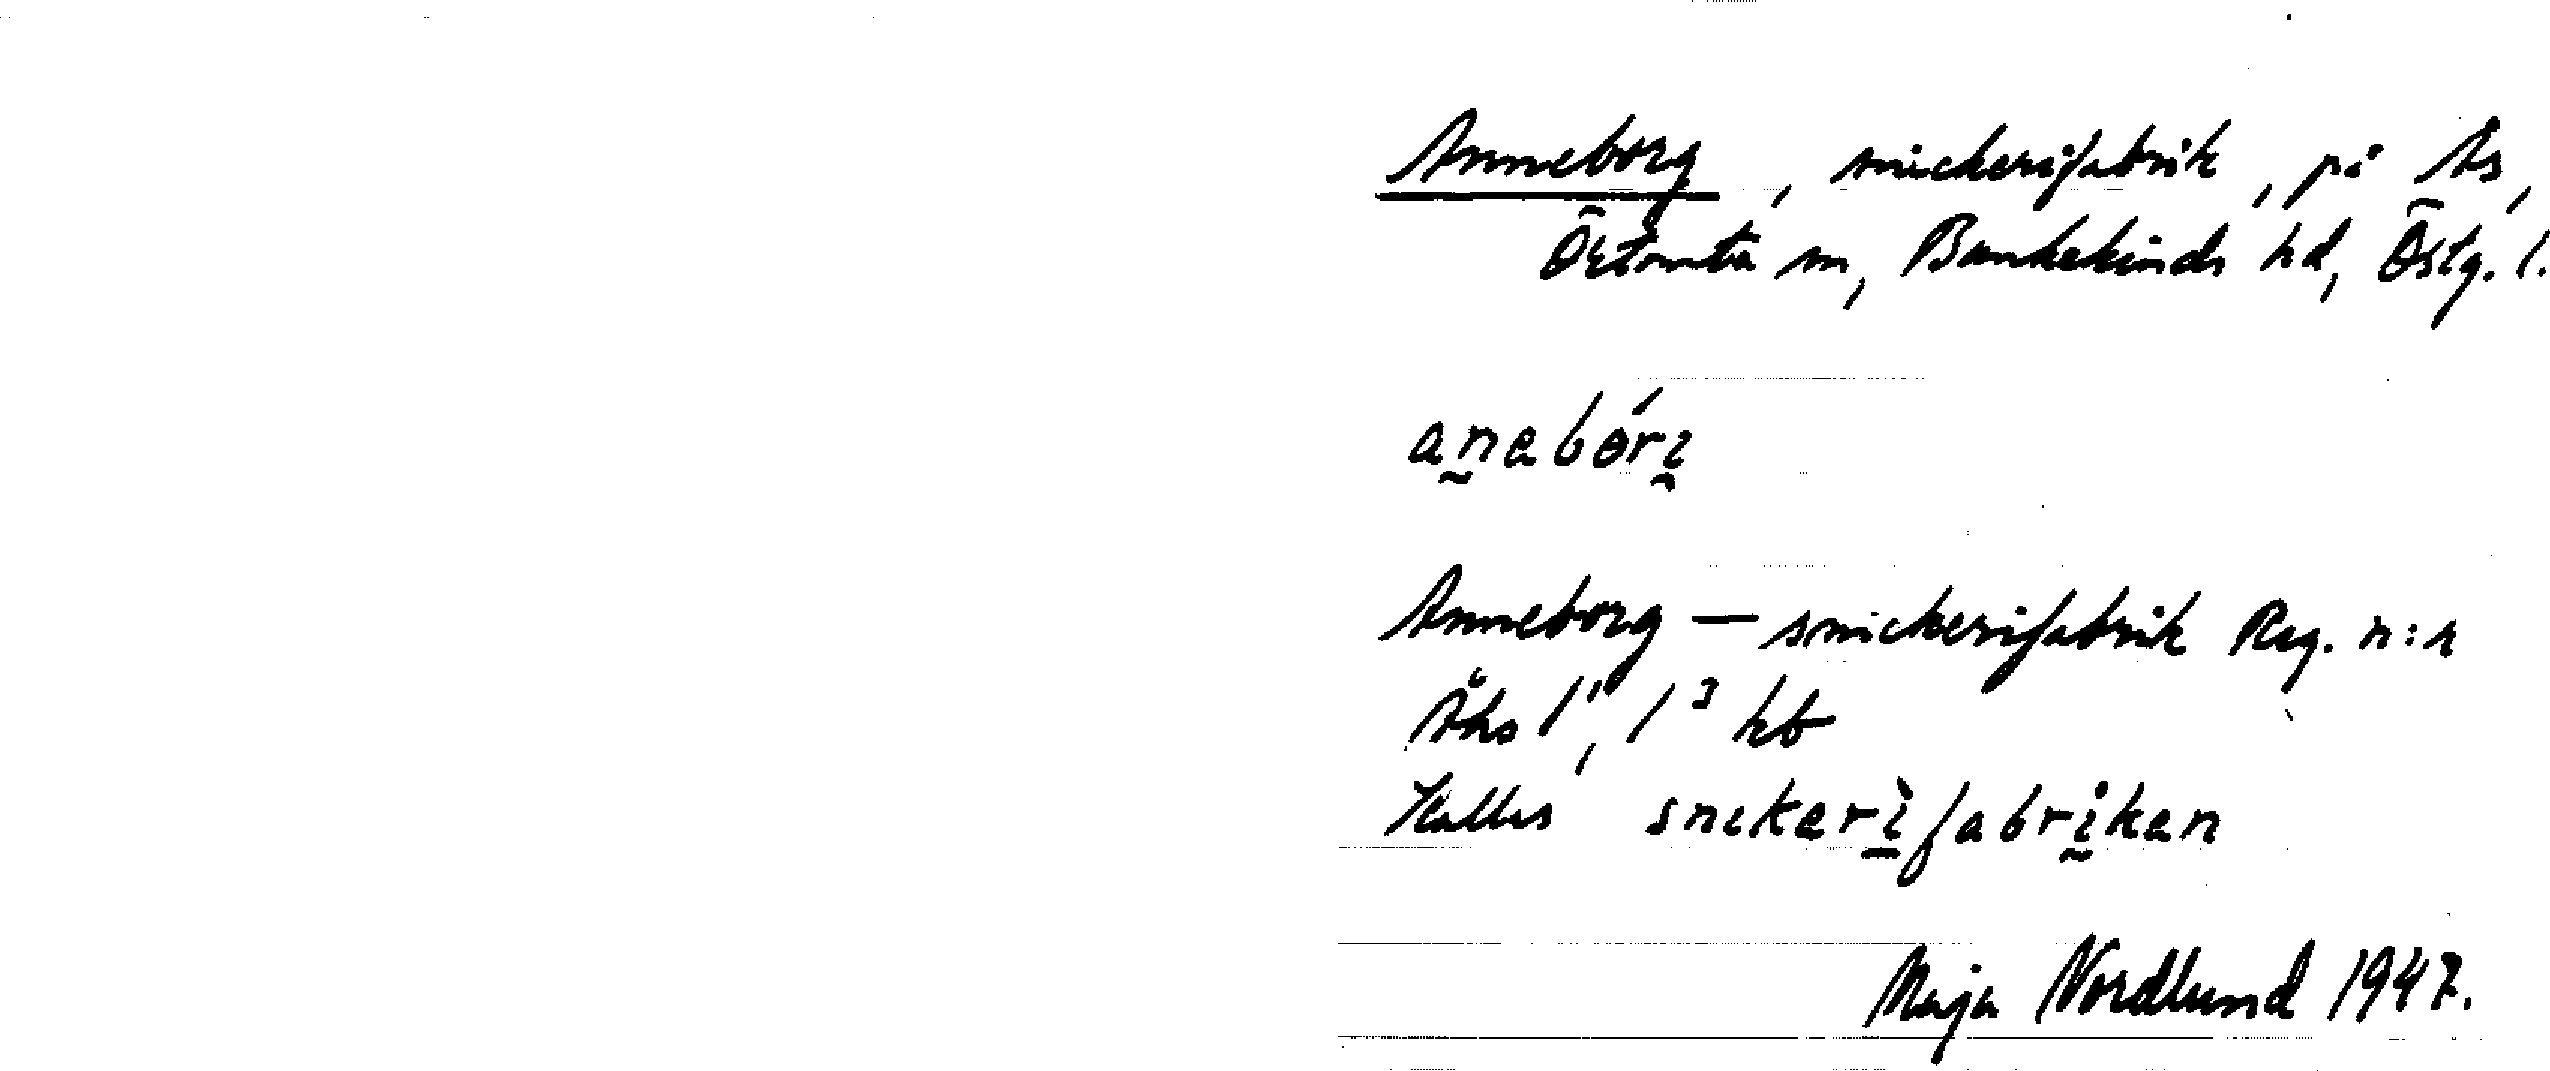 Anneborg, snickerifabrik, på Ås,
Örtomta sn, Bankekinds hd, Östg. l.
anabóri
Anneborg — snickerifabrik Reg. n:r
Åhs 1¹, 1³ kb
Kallas snikerìfabriken
Maja Nordlund 1947.